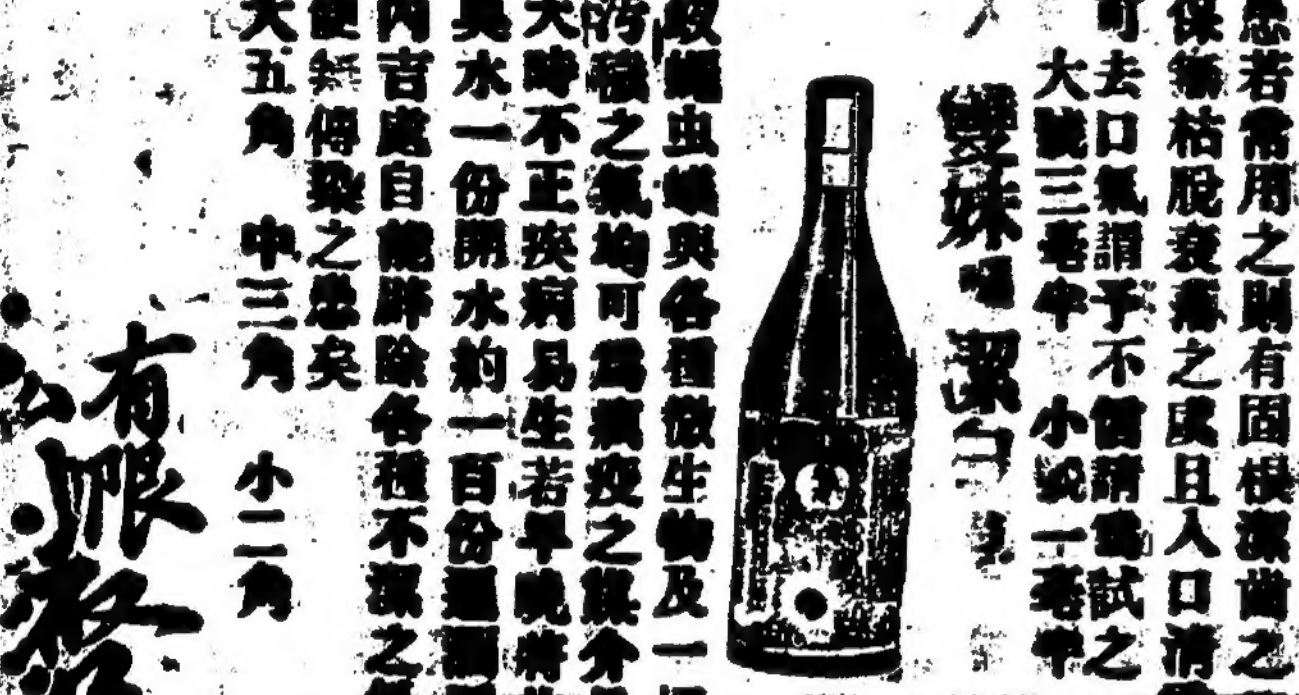 患若常用之則有固根潔齒之
保無枯脫衰落之虞且入口清
可去口氣謂予不信請爲試之
大號三毫半 小號一毫半
雙妹嘜 潔
蚊蠅虫蟻與各種微生物及一切
污穢之氣均可爲瘟疫之媒介
天時不正疾病易生若早晚將
臭水一份開水約一百份遍洒
內吉處自能辟除各種不潔之
便無傳染之患矣
大五角 中三角 小二角
有限